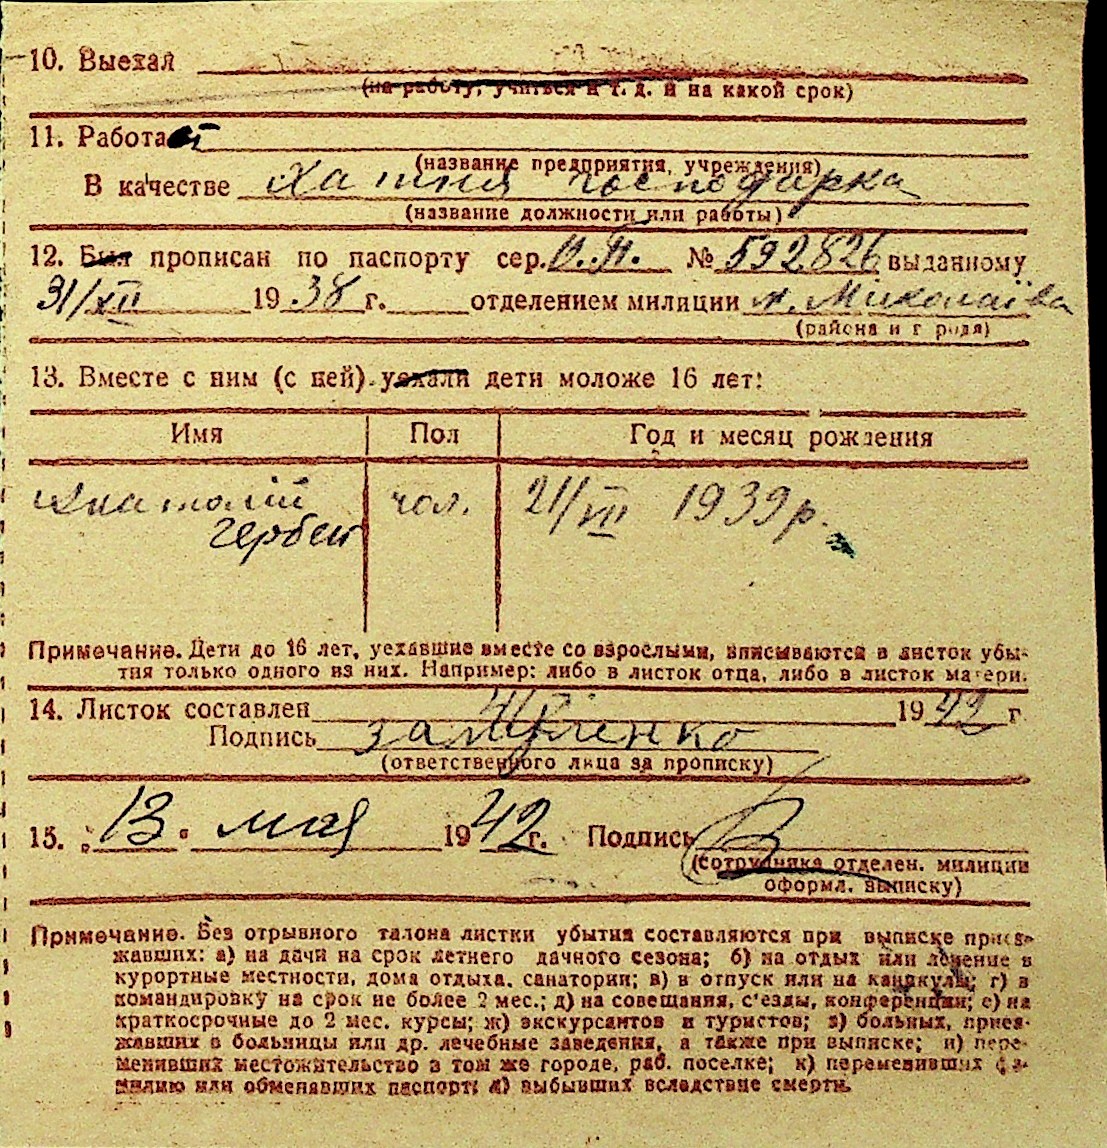 10. Выехал
(на работу, учиться и т. д. и на какой срок)
11. Работает
(название предприятия, учреждения)
В качестве хатня господарка
(название должности или работы)
12. Был прописан по паспорту сер. № 592826 выданному
31/XII 1938 г. отделением милиции м. Миколаїва
(района и города)
13. Вместе с ним (с ней) уехали дети моложе 16 лет:
Имя Пол Год и месяц рождения
Анатолій чол. 21/VII 1939 р.
Гербен
Примечание. Дети до 16 лет, уехавшие вместе со взрослыми, вписываются в листок убы-
тия только одного из них. Например: либо в листок отца, либо в листок матери.
14. Листок составлен 1942 г
Подпись
(ответственного лица за прописку)
15. „13" мая 1942 г. Подпись
(сотрудника отделен. милиции
оформл. выписку)
Примечание. Без отрывного талона листки убытия составляются при выписке приез-
жавших: а) на дачи на срок летнего дачного сезона; б) на отдых или лечение в
курортные местности, дома отдыха, санатории; в) в отпуск или на каникулы; г) в
командировку на срок не более 2 мес.; д) на совещания, с'езды, конференции; е) на
краткосрочные до 2 мес. курсы; ж) экскурсантов и туристов; з) больных, приез-
жавших в больницы или др. лечебные заведения, а также при выписке; и) пере-
менивших местожительство в том же городе, раб. поселке; к) переменивших фа-
милию или обменявших паспорт; л) выбывших вследствие смерти.